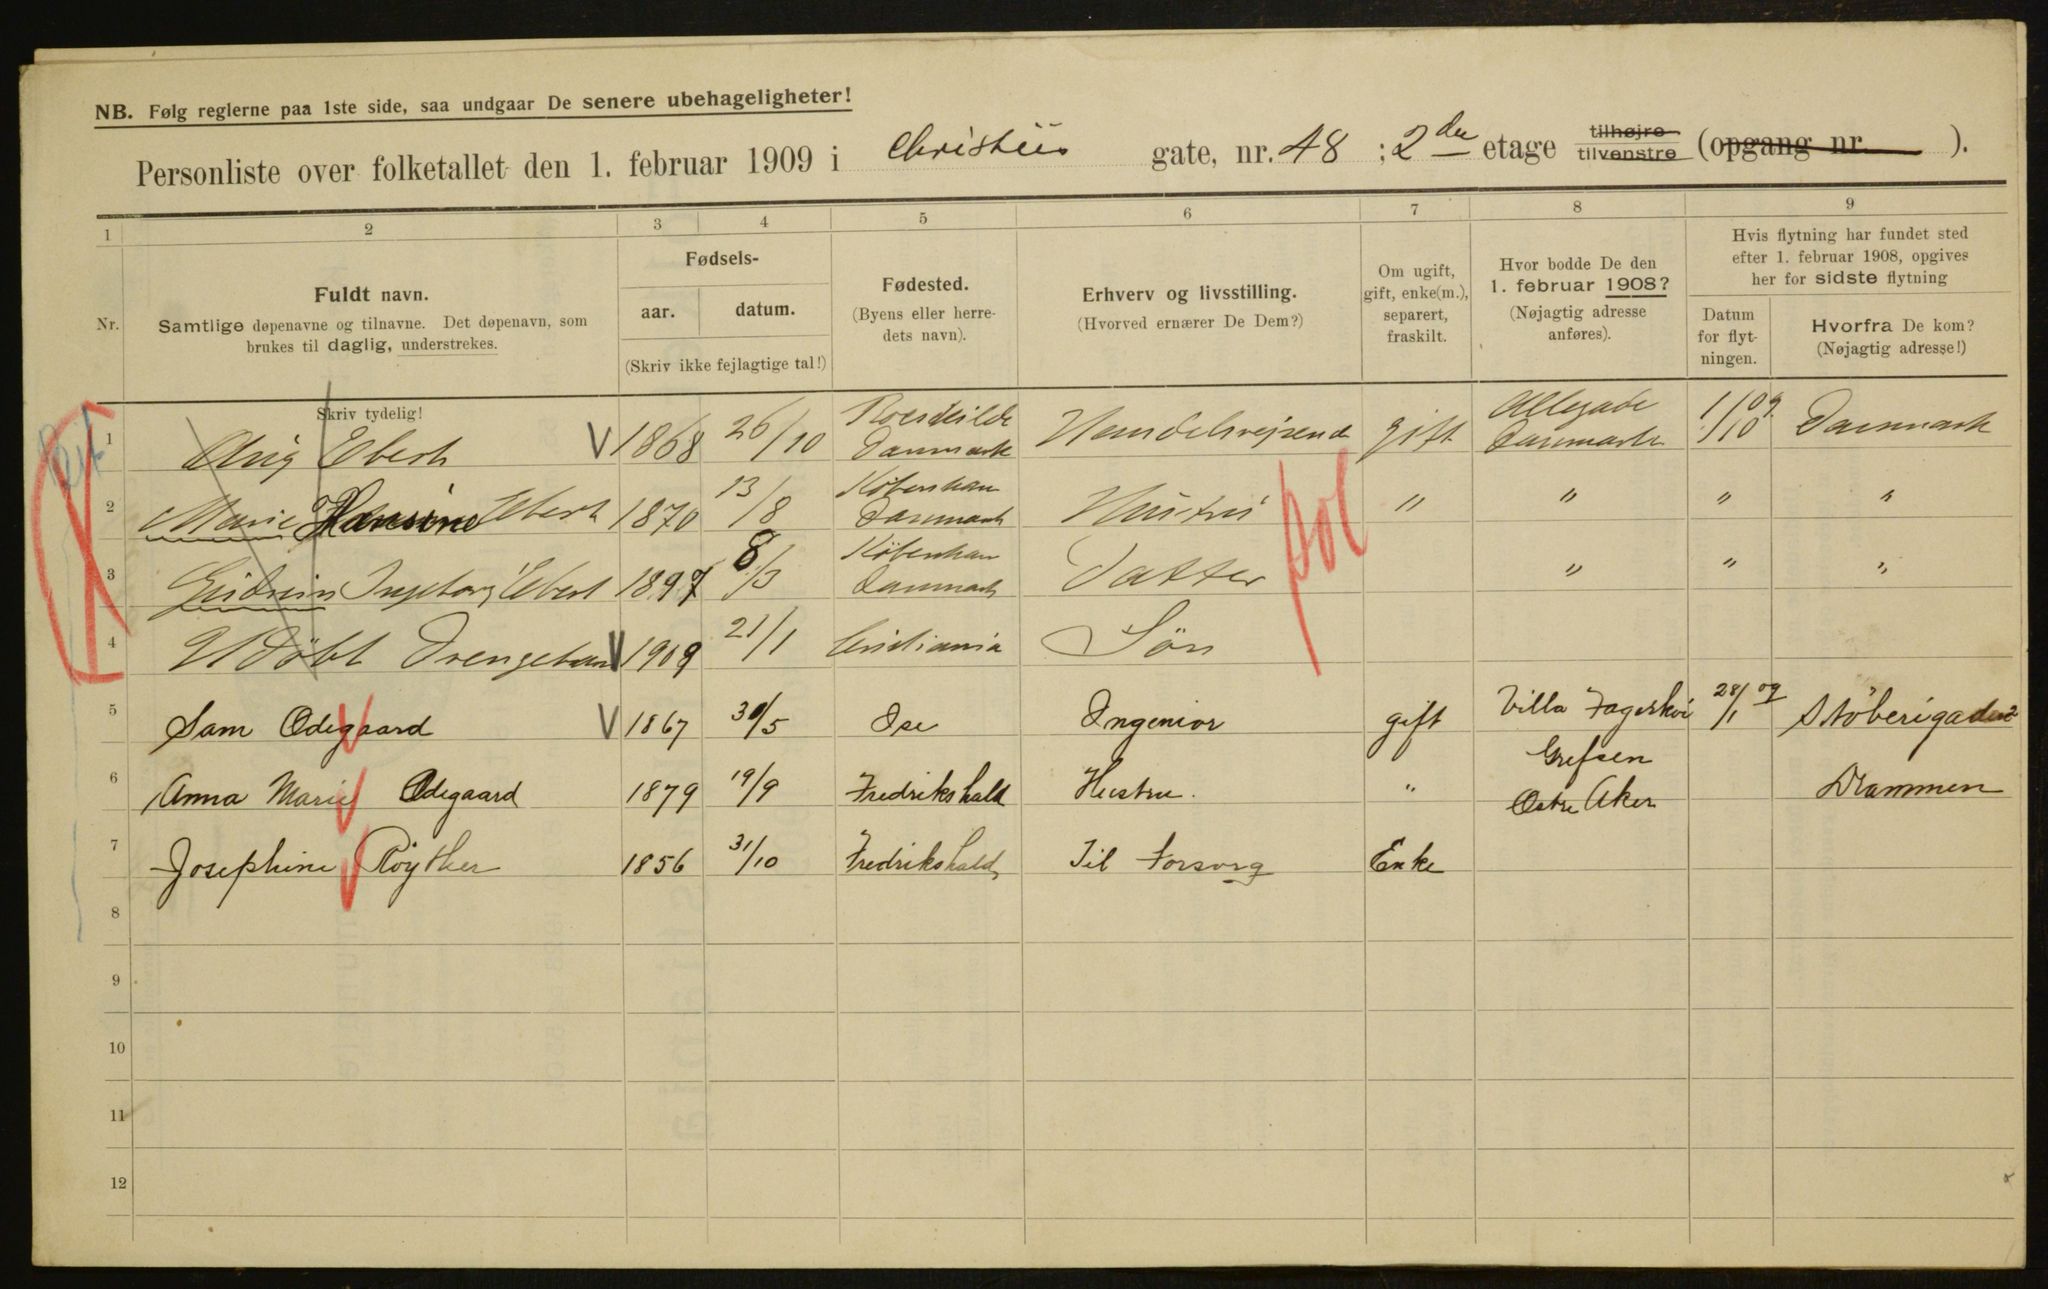 NB. Følg reglerne paa 1ste side, saa undgaar De senere ubehageligheter!
Personliste over folketallet den 1. februar 1909 i Christies gate, nr. 48 ; 2den etage tilhøjre tilvenstre (opgang nr. ).
1 2 3 4 5 6 7 8 9
Nr.
Fuldt navn.
Samtlige døpenavne og tilnavne. Det døpenavn, som
brukes til daglig, understrekes.
Skriv tydelig!
Fødsels-
aar. datum.
(Skriv ikke fejlagtige tal!)
Fødested.
(Byens eller herre-
dets navn).
Erhverv og livsstilling.
(Hvorved ernærer De Dem?)
Om ugift,
gift, enke(m.),
separert,
fraskilt.
Hvor bodde De den
1. februar 1908?
(Nøjagtig adresse
anføres).
Hvis flytning har fundet sted
efter 1. februar 1908, opgives
her for sidste flytning
Datum
for flyt-
ningen.
Hvorfra De kom?
(Nøjagtig adresse!)
1 Ebert V 1868 26/10 Roeskilde Danmark Handelsrejsende gift Allegade Danmark Danmark
2 Marie Hansine Ebert 1870 13/8 Københan Danmark Hustru " " " "
3 Ingeborg Ebert 1897 8/3 Københan Danmark Datter " " "
4 Udöbt Drengebarn V 1909 21/1 Cristiania Sön
5 Sam Ödegaard V 1867 30/5 Ise Ingeniør gift Villa Fagerhøi 28/1 09 Støberigaden 2
6 Anna Marie Ødegaard 1879 19/9 Fredrikshald Hustru. " Grefsen Østre Aker Drammen
7 Josephine Röyther 1856 31/10 Fredrikshald Til Forsorg Enke
8
9
10
11
12